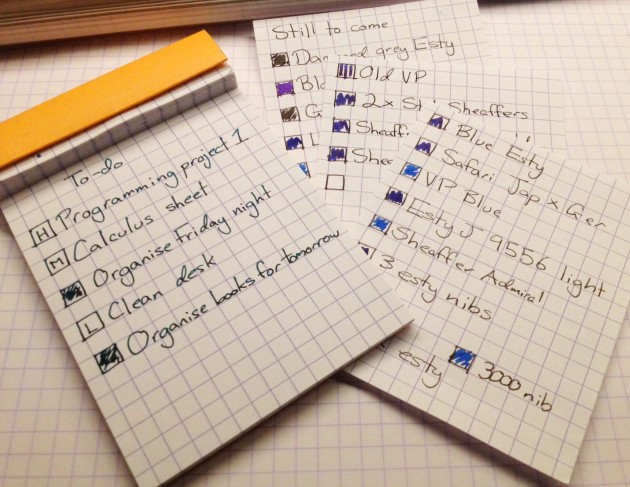 To-do
H Programming project 1
M Calculus sheet
Organise Friday night
L Clean desk
Organise books for tomorrow
Still to come
grey Esty
Old VP
2x St Sheaffers
Sheaff
Shea
Blue Esty
Safari Jap x Ger
VP Blue
Esty J 9556 light
Sheaffer Admiral
3 esty nibs
esty
3000 nib